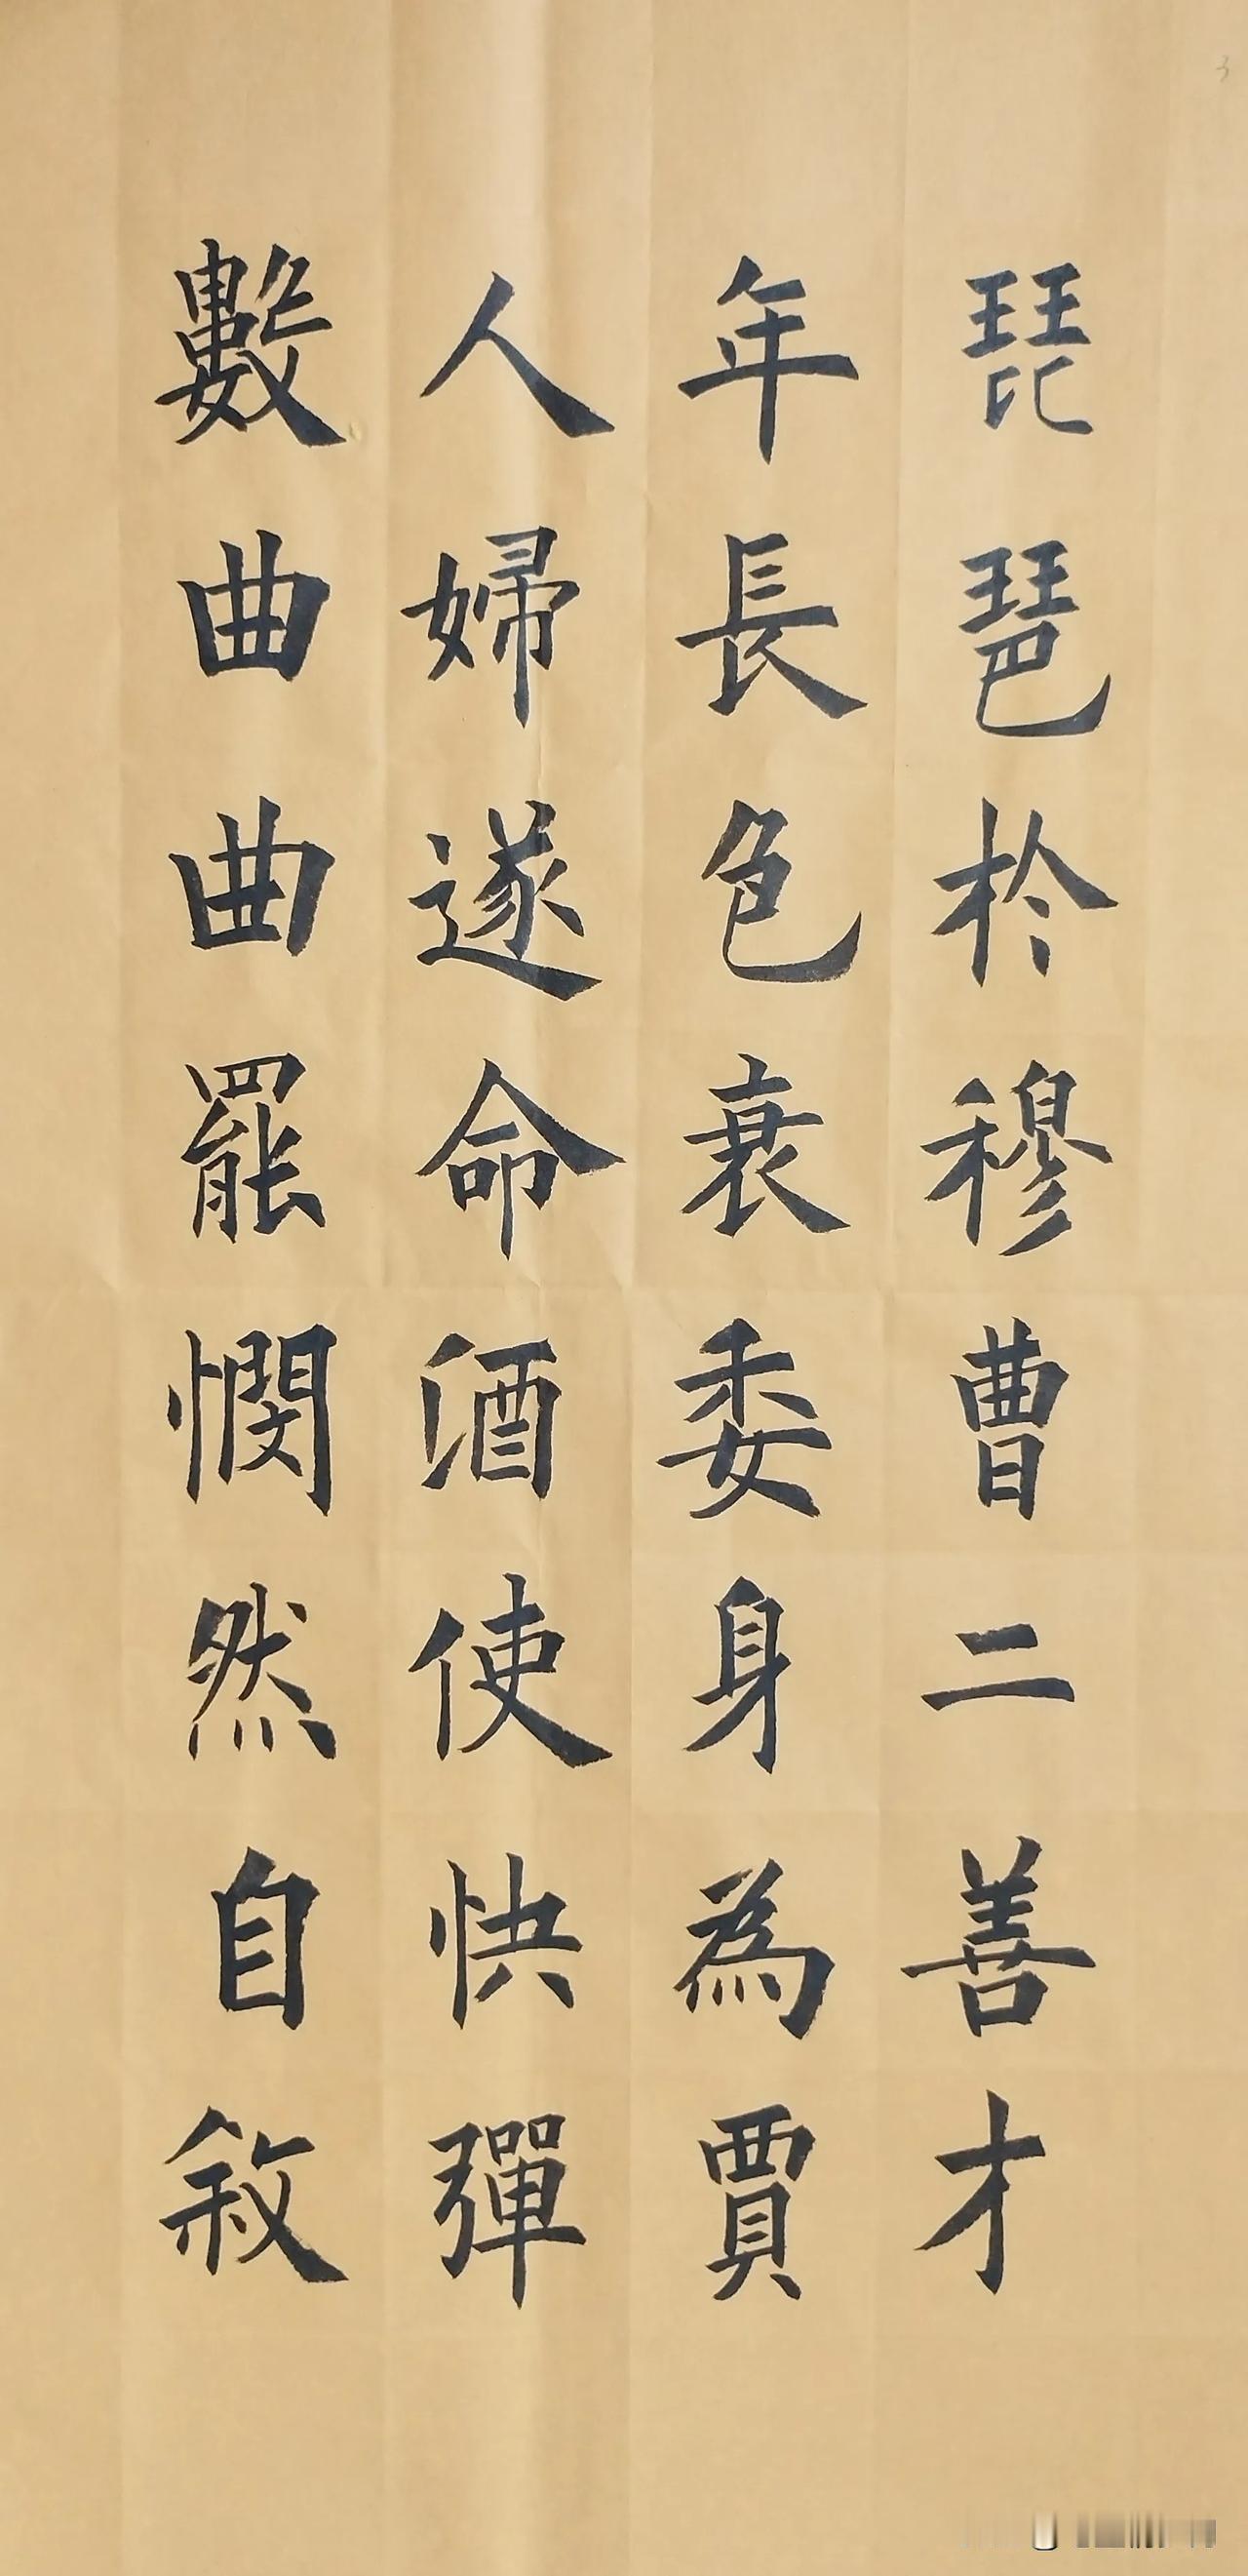 琵琶於穆曹二善才
年長色衰委身為賈
人婦遂命酒使快彈
數曲曲罷憫然自敘
3